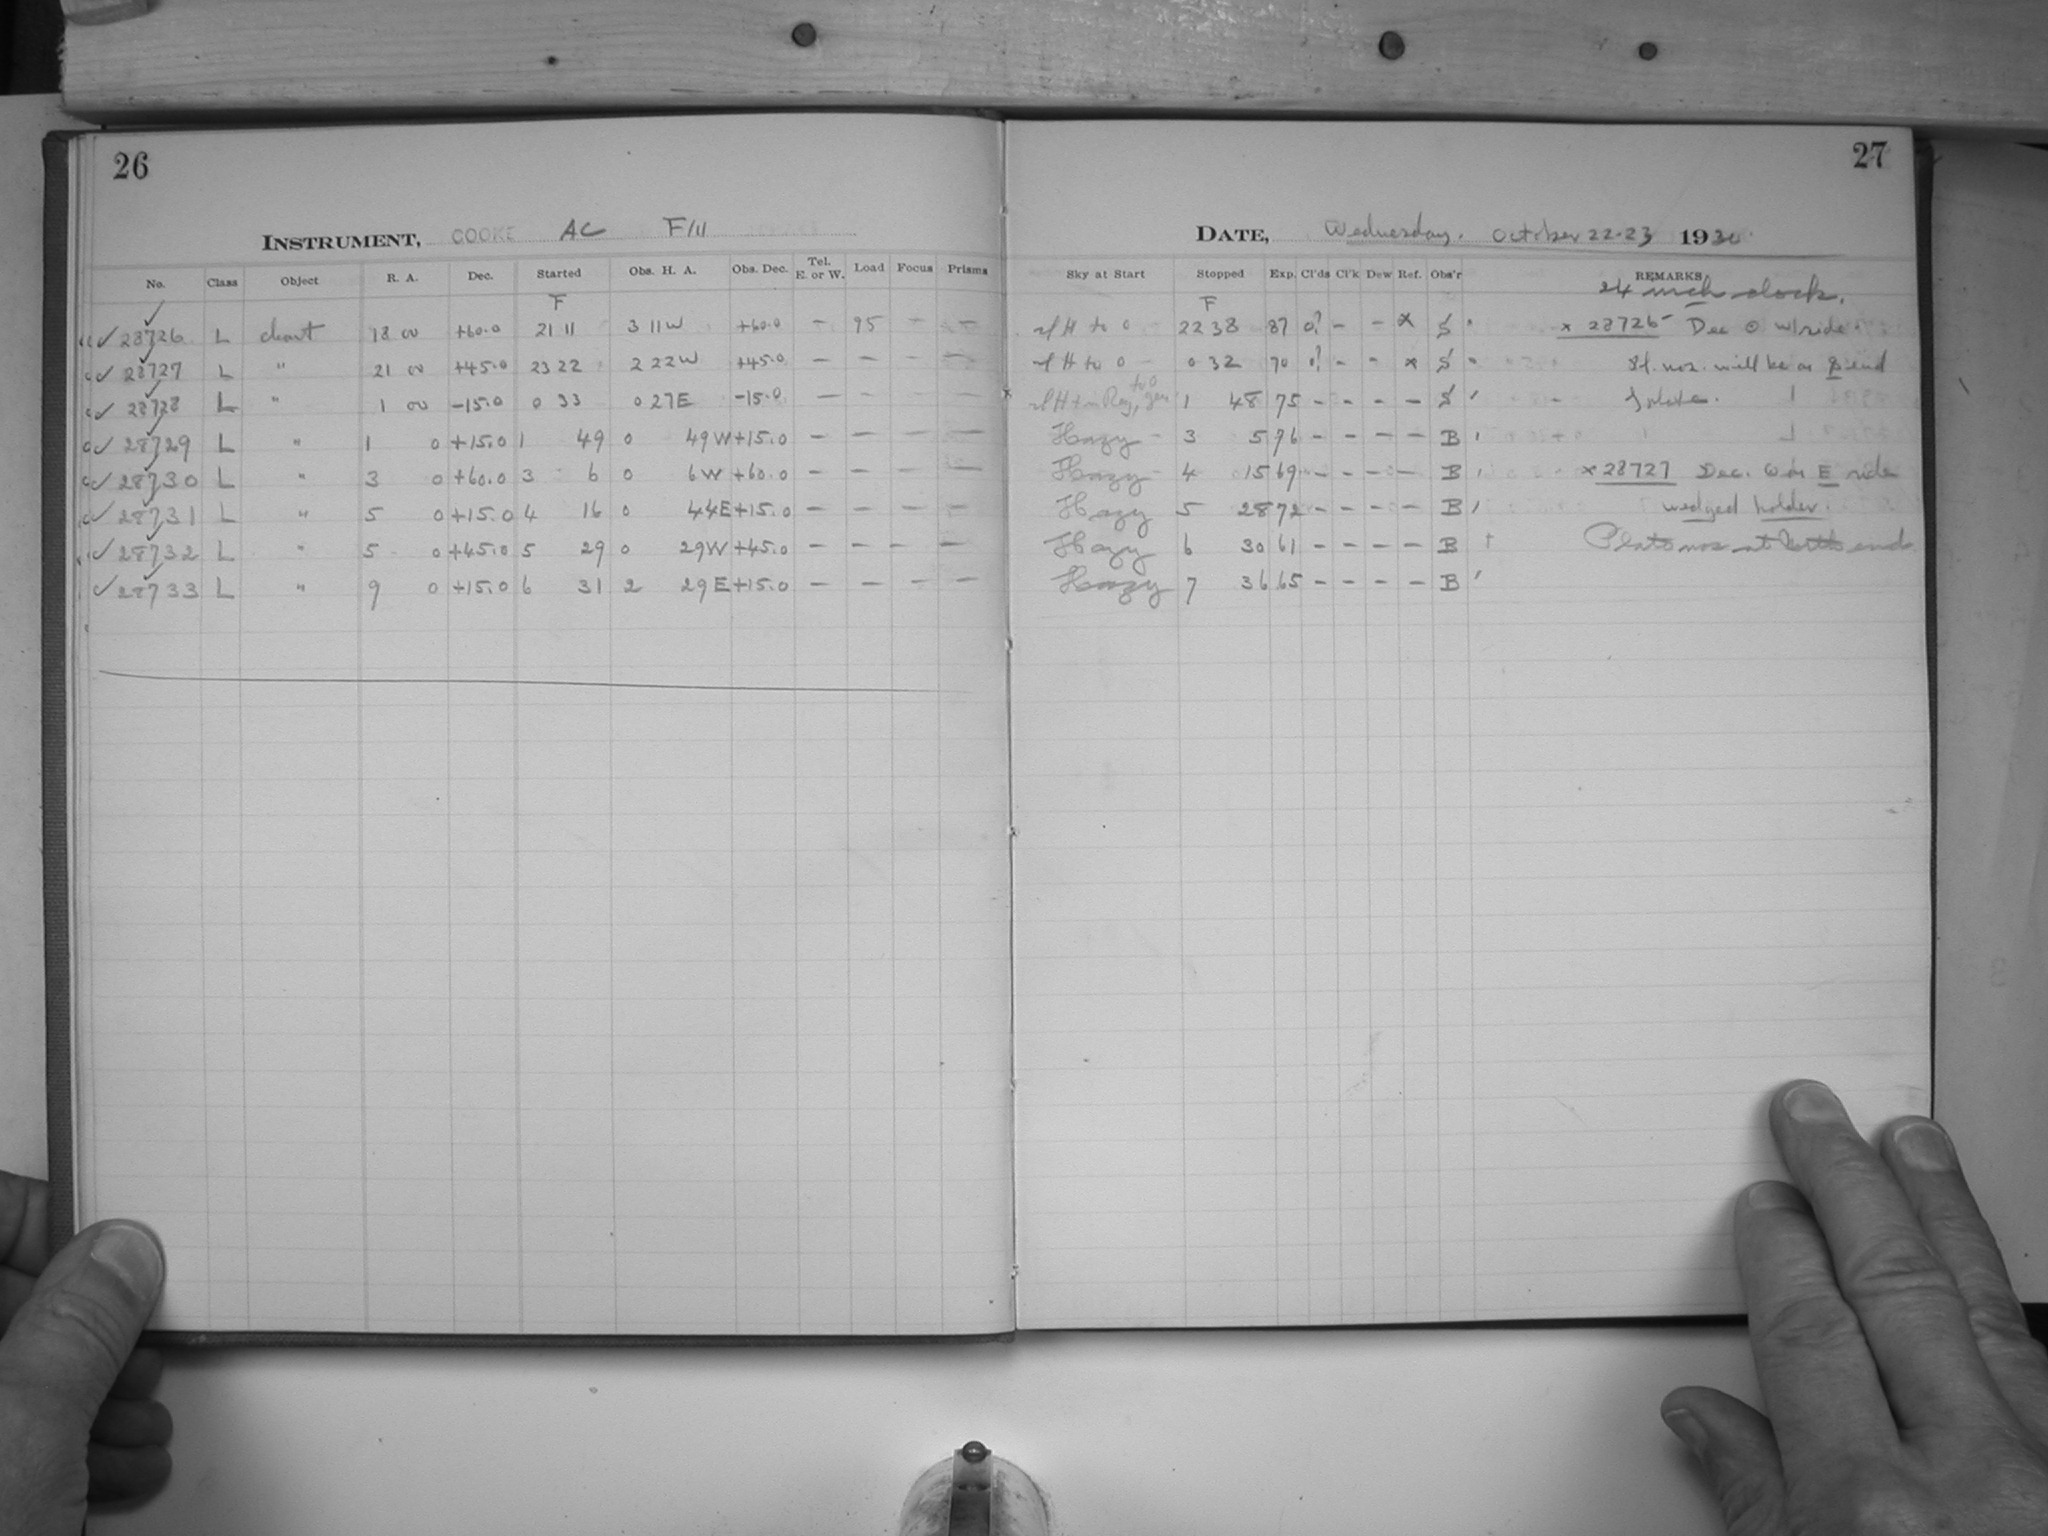 26
INSTRUMENT, COOKE AC F/11
No. Class Object R. A. Dec. Started Obs. H. A. Obs. Dec. Tel. E. or W. Load Focus Prisms
F
✓ 28726 L chart 18 00 +60.0 21 11 3 11 W +60.0 — 95 — —
✓ 28727 L " 21 00 +45.0 23 22 2 22 W +45.0 — — — —
✓ 28728 L " 1 00 -15.0 0 33 0 27 E -15.0 — — — —
✓ 28729 L " 1 0 +15.0 1 49 0 49 W +15.0 — — — —
✓ 28730 L " 3 0 +60.0 3 6 0 6 W +60.0 — — — —
✓ 28731 L " 5 0 +15.0 4 16 0 44 E +15.0 — — — —
✓ 28732 L " 5 0 +45.0 5 29 0 29 W +45.0 — — — —
✓ 28733 L " 9 0 +15.0 6 31 2 29 E +15.0 — — — —
27
DATE, Wednesday. October 22-23 1930
Sky at Start Stopped Exp. Cl'ds Cl'k Dew Ref. Obs'r REMARKS
24 inch clock.
F
H to 0 22 38 87 0? - - x S x 28726 Dec W side
H to 0 0 32 70 0? - - x S nos. will be on S end
1 48 75 - - - - S
Hazy 3 5 76 - - - - B
Hazy 4 15 69 - - - - B x 28727 Dec. on E side
Hazy 5 28 72 - - - - B wedged holder.
Hazy 6 30 61 - - - - B Plate nos at end
Hazy 7 36 65 - - - - B